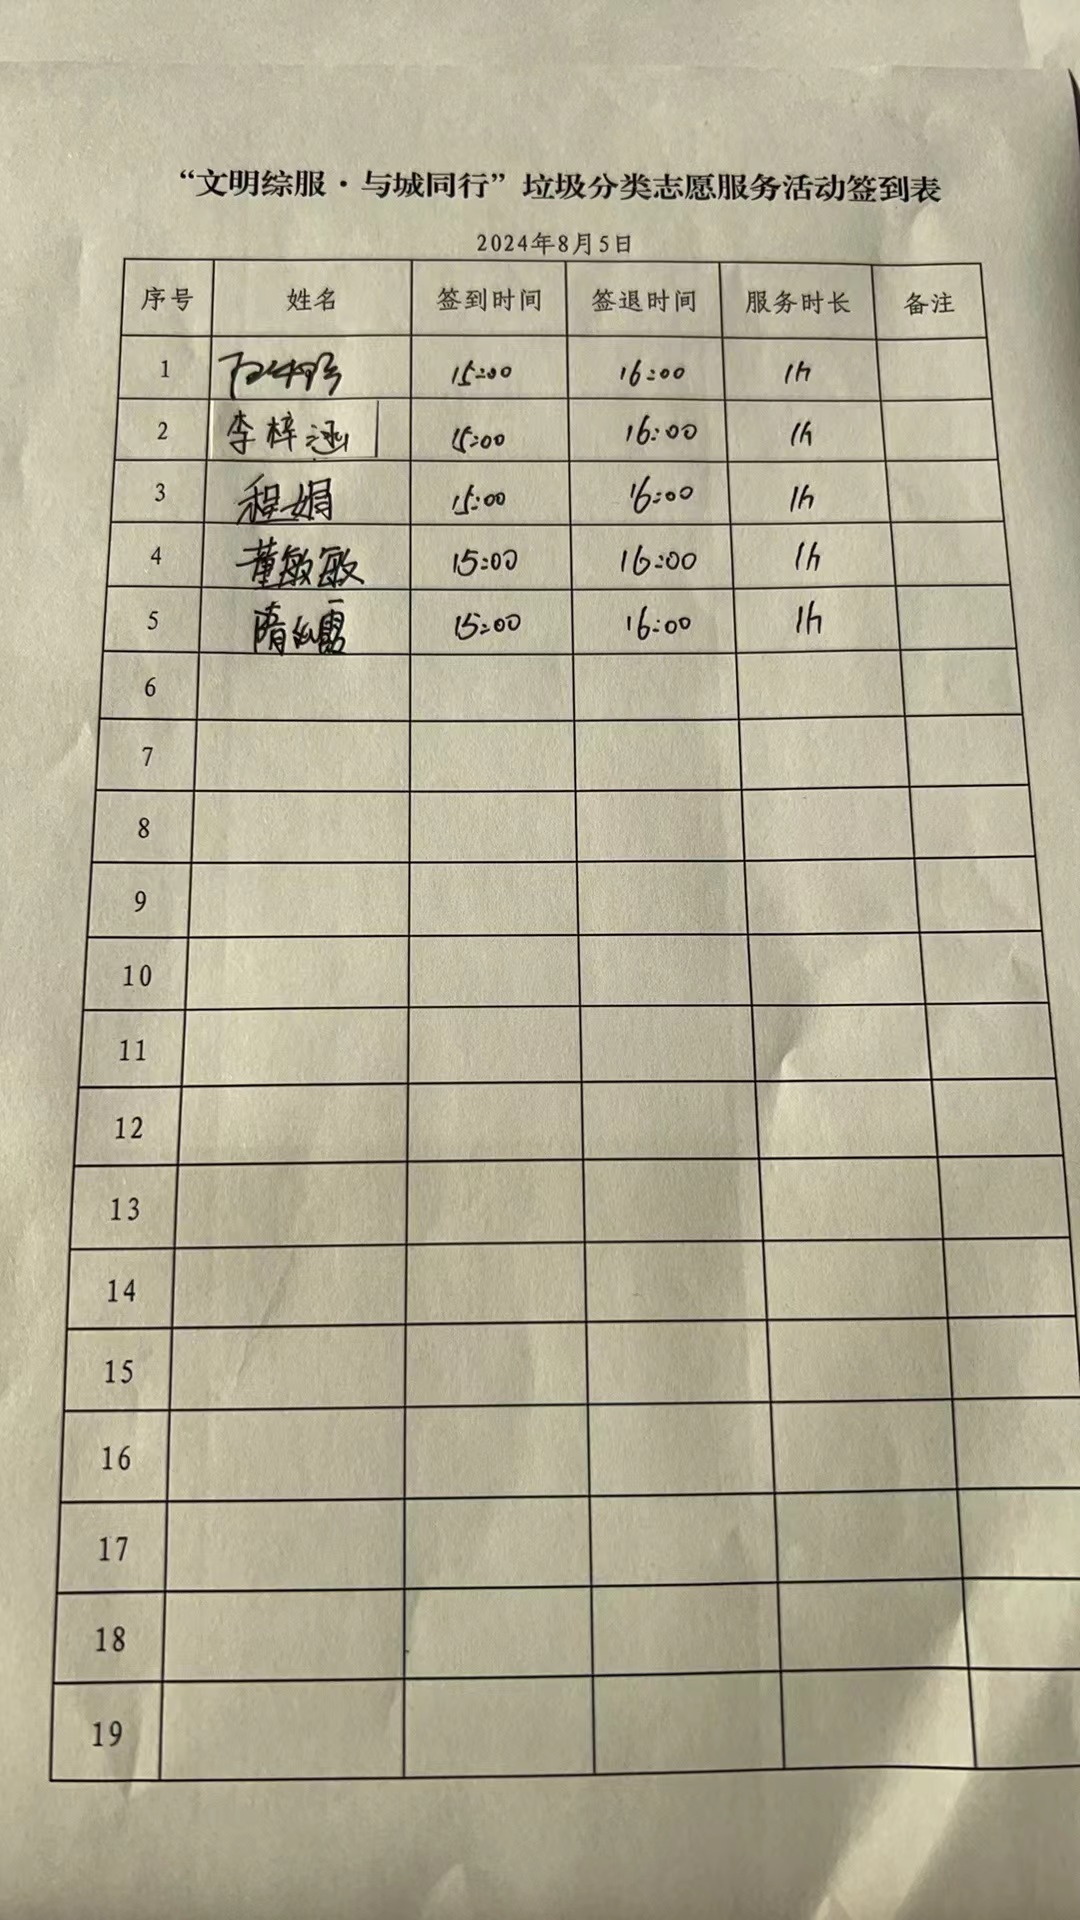 “文明综服·与城同行”垃圾分类志愿服务活动签到表
2024年8月5日
序号 姓名 签到时间 签退时间 服务时长 备注
1 15:00 16:00 1h
2 李梓涵 15:00 16:00 1h
3 程娟 15:00 16:00 1h
4 董敏敏 15:00 16:00 1h
5 隋 15:00 16:00 1h
6
7
8
9
10
11
12
13
14
15
16
17
18
19